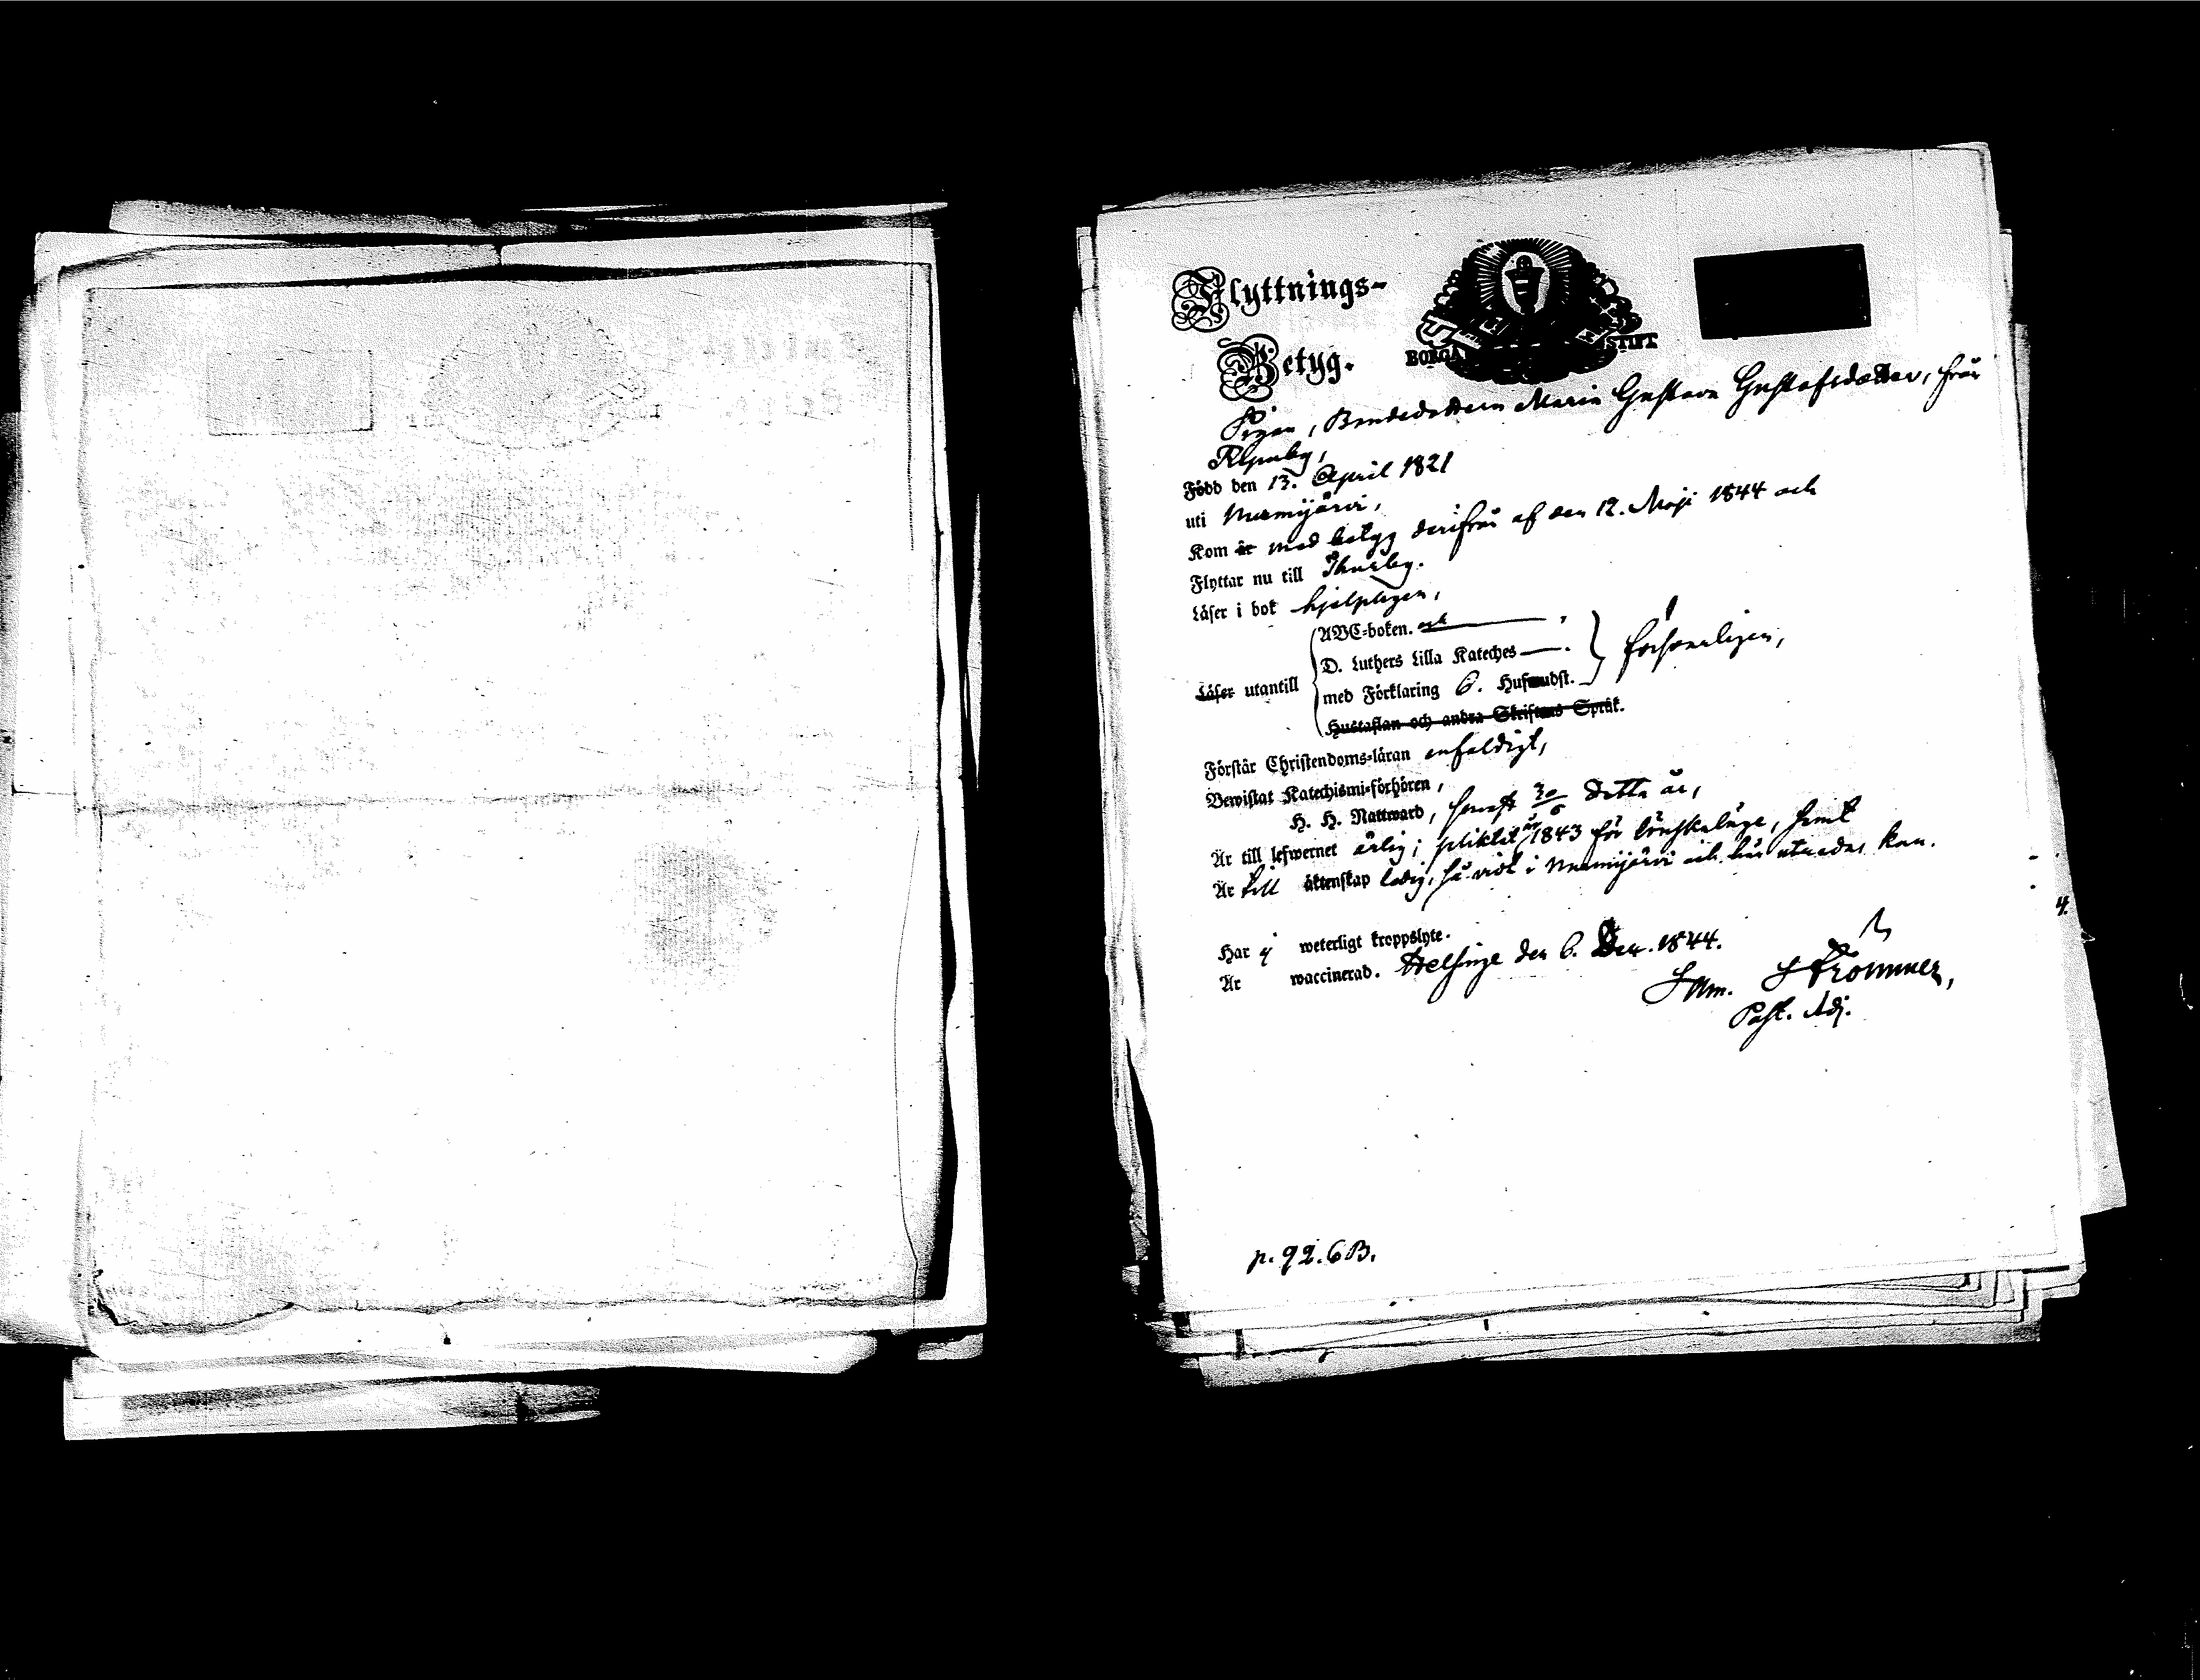 Flyttnings-
Betyg.
BORGÅ STIFT
Pigan, Bondedottern Maria Gustava Gustafsdotter, från
Ripuby,
Född den 13. April 1821
uti Nurmijärvi,
Kom är med betyg derifrån af den 12. Maji 1844 och
Flyttar nu till Thusby.
Läser i bok hjelpligen,
ABC-boken. och
D. Luthers Lilla Kateches
Läser utantill med Förklaring 6. Hufwudst. försvarligen,
Hustaflan och andra Skriftens Språk.
Förstår Christendoms-läran enfaldigt,
Bewistat Katechismi-förhören,
H. H. Nattward, senast 30/6 detta år,
Är till lefwernet ärlig; pliktat år 1843 för lönskaläge, samt
Är till äktenskap ledig, så vidt i Nurmijärvi och här utredas kan.
Har ej weterligt kroppslyte.
Är waccinerad. Helsinge den 6. Dec. 1844.
Sam. Strömmer,
Past. Adj.
4.
p. 92. 6 B.